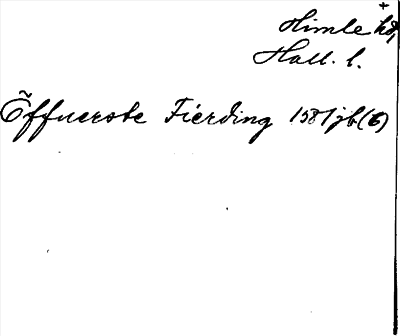 Himle hd,
Hall. l.
Õffuerste Fierding 1581 jb (6)